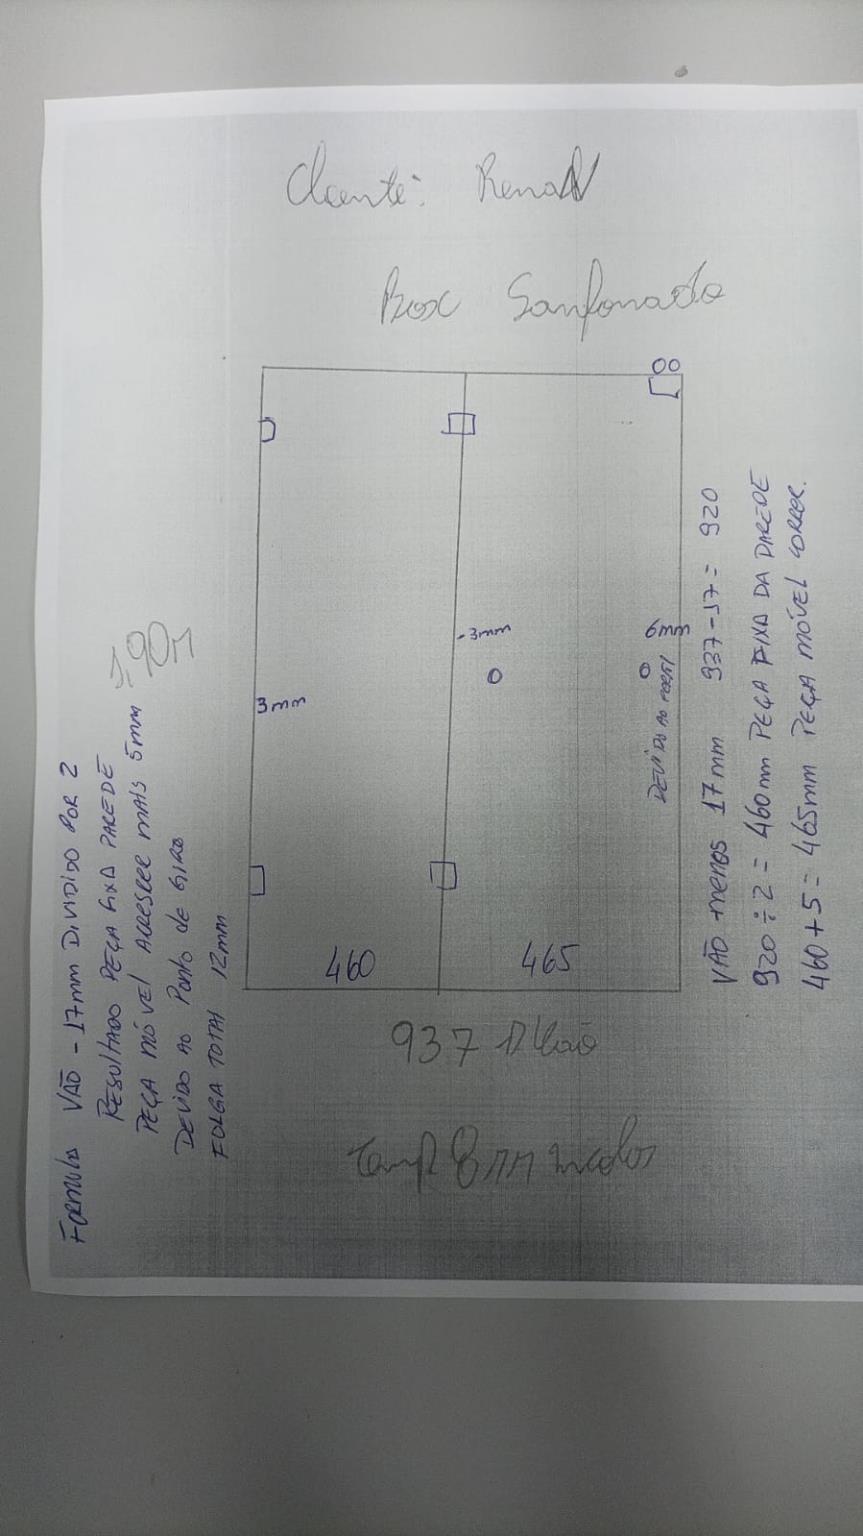 Cliente: Renan
Box Sanfonado
1,90M
3mm
-3mm
6mm
DEVIDO AO PERFIL
460
465
937 Vão
Temp 8MM incolor
FORMULA VÃO - 17mm DIVIDIDO POR 2
RESULTADO PEÇA FIXA PAREDE
PEÇA MÓVEL ACRESCER MAIS 5mm
DEVIDO AO Ponto de GIRO
FOLGA TOTAL 12mm
VÃO menos 17mm 937-17= 920
920÷2= 460mm PEÇA FIXA DA PAREDE
460+5= 465mm PEÇA MÓVEL CORRER.